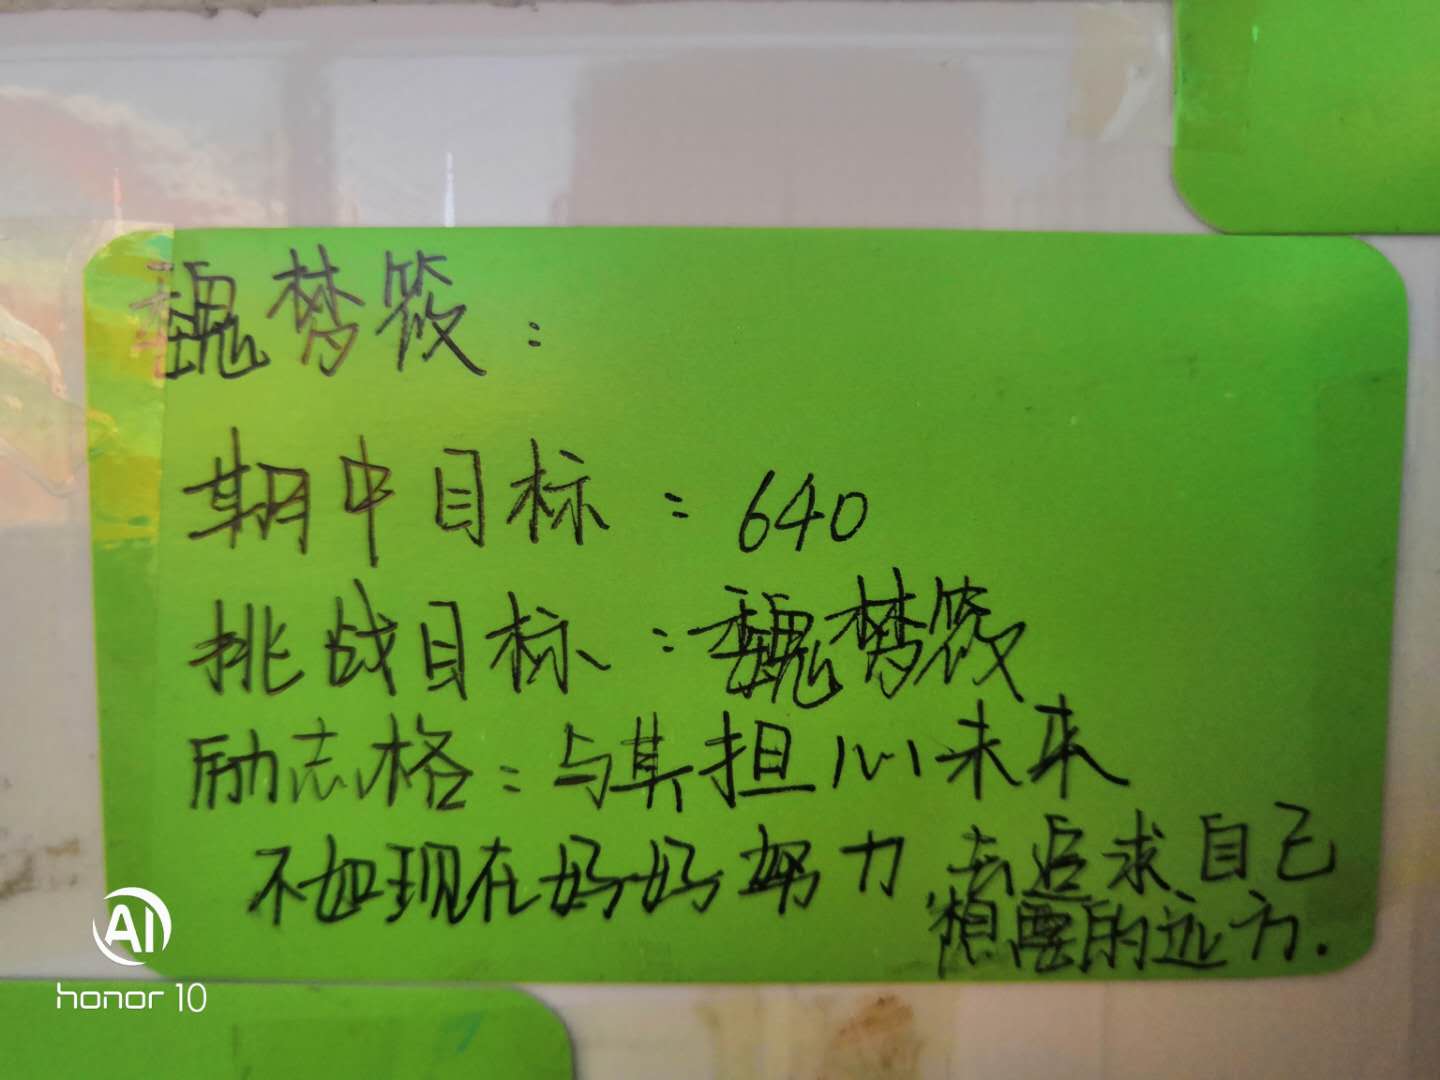 魏梦筱：
期中目标：640
挑战目标：魏梦筱
励志格：与其担心未来
不如现在好好努力 去追求自己
想要的远方.
AI
honor 10